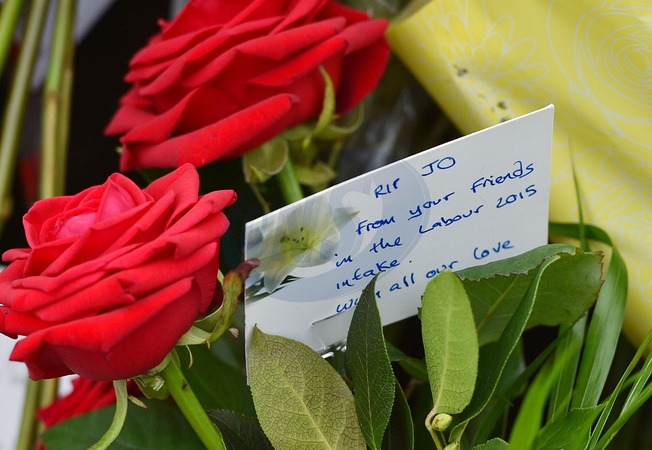 RIP JO
From your friends
in the Labour 2015
intake.
with all our love